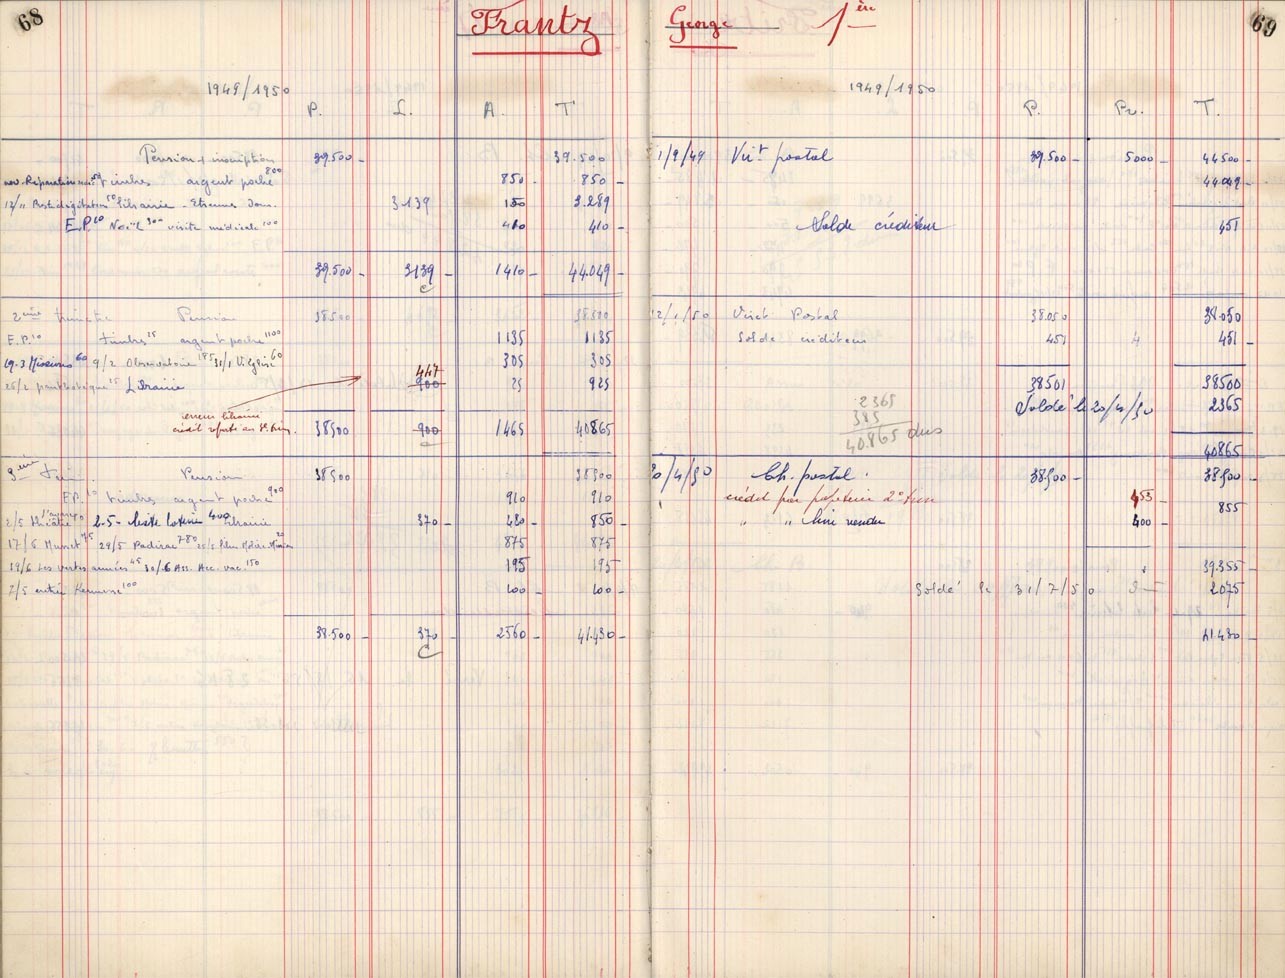 68
Frantz
1949/1950
P. L. A. T
Pension + inscription 39.500 - 39.500 -
timbres 50 argent poche 800 850 - 850 -
12/11 Prestidigitation 50 librairie - Etrennes dom. 3139 150 3.289
E.P. 10 Noël 300 visite médicale 100 410 410 -
39.500 - 3139 - 1410 - 44.049 -
c
2ème trimestre Pension 38500 38500
E.P. 10 timbres 25 argent poche 1100 1135 1135
19.3 Missions 60 9/2 Observatoire 185 31/1 60 305 305
447
25/2 25 Librairie 900 25 925
erreur librairie
crédit reporté au 3e trim.
38500 900 1465 40865
3ème trim. Pension 38500 38500
E.P. 10 timbres argent poche 900 910 910
2/5 Théâtre 2-5- loterie 400 librairie 370 - 480 - 850 -
17/6 Musset 75 29/5 Padirac 780 20 875 875
19/6 Les vertes années 45 30/6 Ass. Acc. vac. 150 195 195
7/5 entrée Kermesse 100 100 - 100 -
38.500 - 370 - 2560 - 41.430 -
C
69
George 1ère
1949/1950
P. Pr. T.
1/9/49 Virt postal 39.500 - 5000 - 44500 -
44.049 -
Solde créditeur 451
12/1/50 Virct Postal 38.050 38.050
Solde créditeur 451 451 -
38501 38500
Soldé le 20/4/50 2365
2365
385
40.865 dus
40865
20/4/50 Ch. postal. 38.500 - 38.500 -
crédit par papeterie 2e trim 455 855
" " livre vendu 400 -
39.355 -
Soldé le 31/7/50 2075
41.430 -